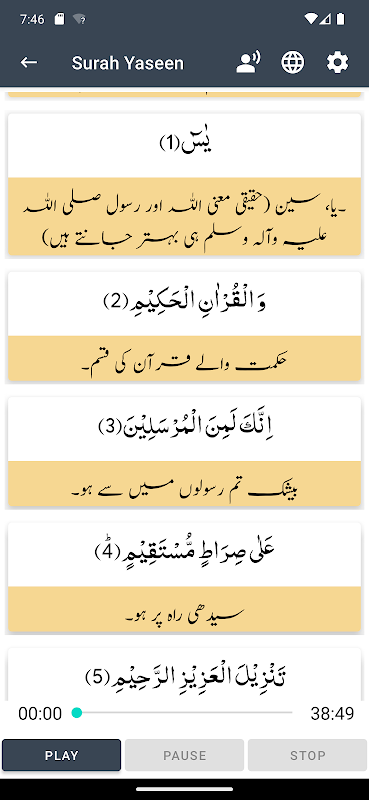 7:46
Surah Yaseen
یٰسٓ(1)
۔یا، سین (حقیقی معنی اللہ اور رسول صلی اللہ
علیہ وآلہ وسلم ہی بہتر جانتے ہیں)
وَ الْقُرْاٰنِ الْحَكِیْمِ(2)
حکمت والے قرآن کی قسم۔
اِنَّكَ لَمِنَ الْمُرْسَلِیْنَ(3)
بیشک تم رسولوں میں سے ہو۔
عَلٰى صِرَاطٍ مُّسْتَقِیْمٍﭤ(4)
سیدھی راہ پر ہو۔
تَنْزِیْلَ الْعَزِیْزِ الرَّحِیْمِ(5)
00:00 38:49
PLAY PAUSE STOP